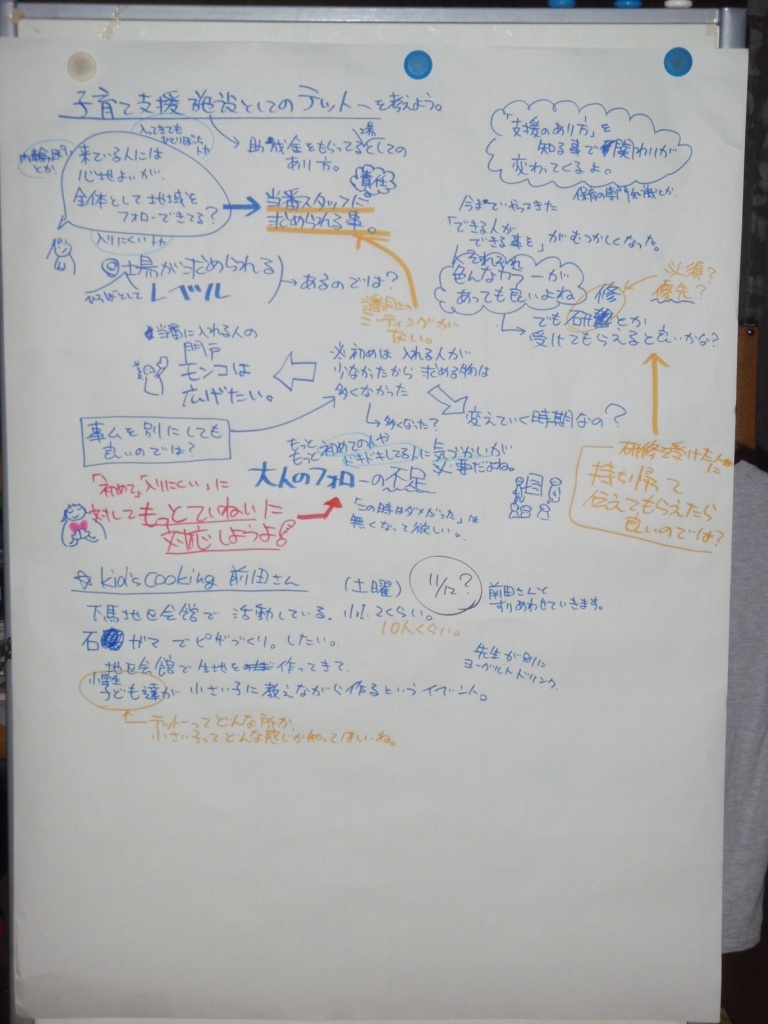 子育て支援施設としてのテットーを考えよう。
入ってきても
内輪っぽい?
とか
来ている人には
心地よいが、
全体として地域を
フォローできてる?
入りにくいトカ
助成金をもらってる場としての
あり方。
責任
当番スタッフに
求められる事。
「支援のあり方」を
知る事で関わりが
変わってくるよ。
保育の専門知識とか
今までやってきた
「できる人が
できる事を」がむつかしくなった。
それぞれ
色んなカラーが
あっても良いよね
でも研修とか
受けてもらえると良いかな?
必須で
優先?
場が求められる
ひろばとして
レベル
あるのでは?
ミーティングが
ない。
当番に入れる人の
門戸
モンコは
広げたい。
※初めは入れる人が
少なかったから求める物は
多くなかった
多くなった?
変えていく時期なの?
事ムを別にしても
良いのでは?
もっと初めての人や
もっとドキドキしてる人に気づかいが
必要だよね。
大人のフォローの不足
「初めて」「入りにくい」に
対してもっとていねいに
対応しようよ!
「この時はダメだった」は
無くなって欲しい。
研修を受けた人に
持ち帰って
伝えてもらえたら
良いのでは?
☆ kid's cooking 前田さん
(土曜)
11/12?
前田さんと
すりあわせていきます。
下馬地区会館で活動している。小1.2くらい。
10人くらい。
石ガマでピザづくり。したい。
地区会館で生地を作ってきて、
小学生
子ども達が小さい子に教えながら作るというイベント。
先生が別に
ヨーグルトドリンク
テットーってどんな所か
小さい子ってどんな感じか知ってほしいね。